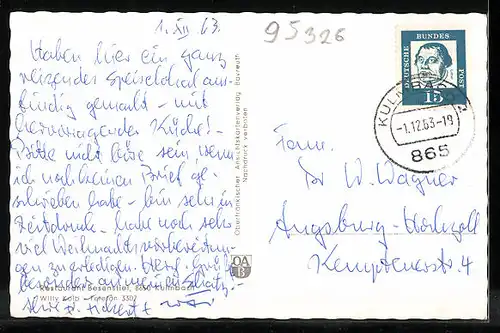 1. XII 63.
95326
Haben hier ein ganz
reizendes Speiselokal aus-
findig gemacht – mit
hervorragender Küche!
Bitte nicht böse sein wenn
ich noch keinen Brief ge-
schrieben habe – bin sehr in
Zeitdruck – habe noch sehr
viel Weihnachtsvorbereitun-
gen zu erledigen. Herzl. Grüße
besonders an meinen Schatz.
Restaurant
Willy Kolb - Telefon 3302
Oberfränkischer Ansichtskartenverlag Bayreuth
Nachdruck verboten
OA
B
DEUTSCHE BUNDES POST
15
-1.12.63-19
865
Fam.
Dr W. Wagner
Augsburg-Hochzoll
Kemptenerstr. 4